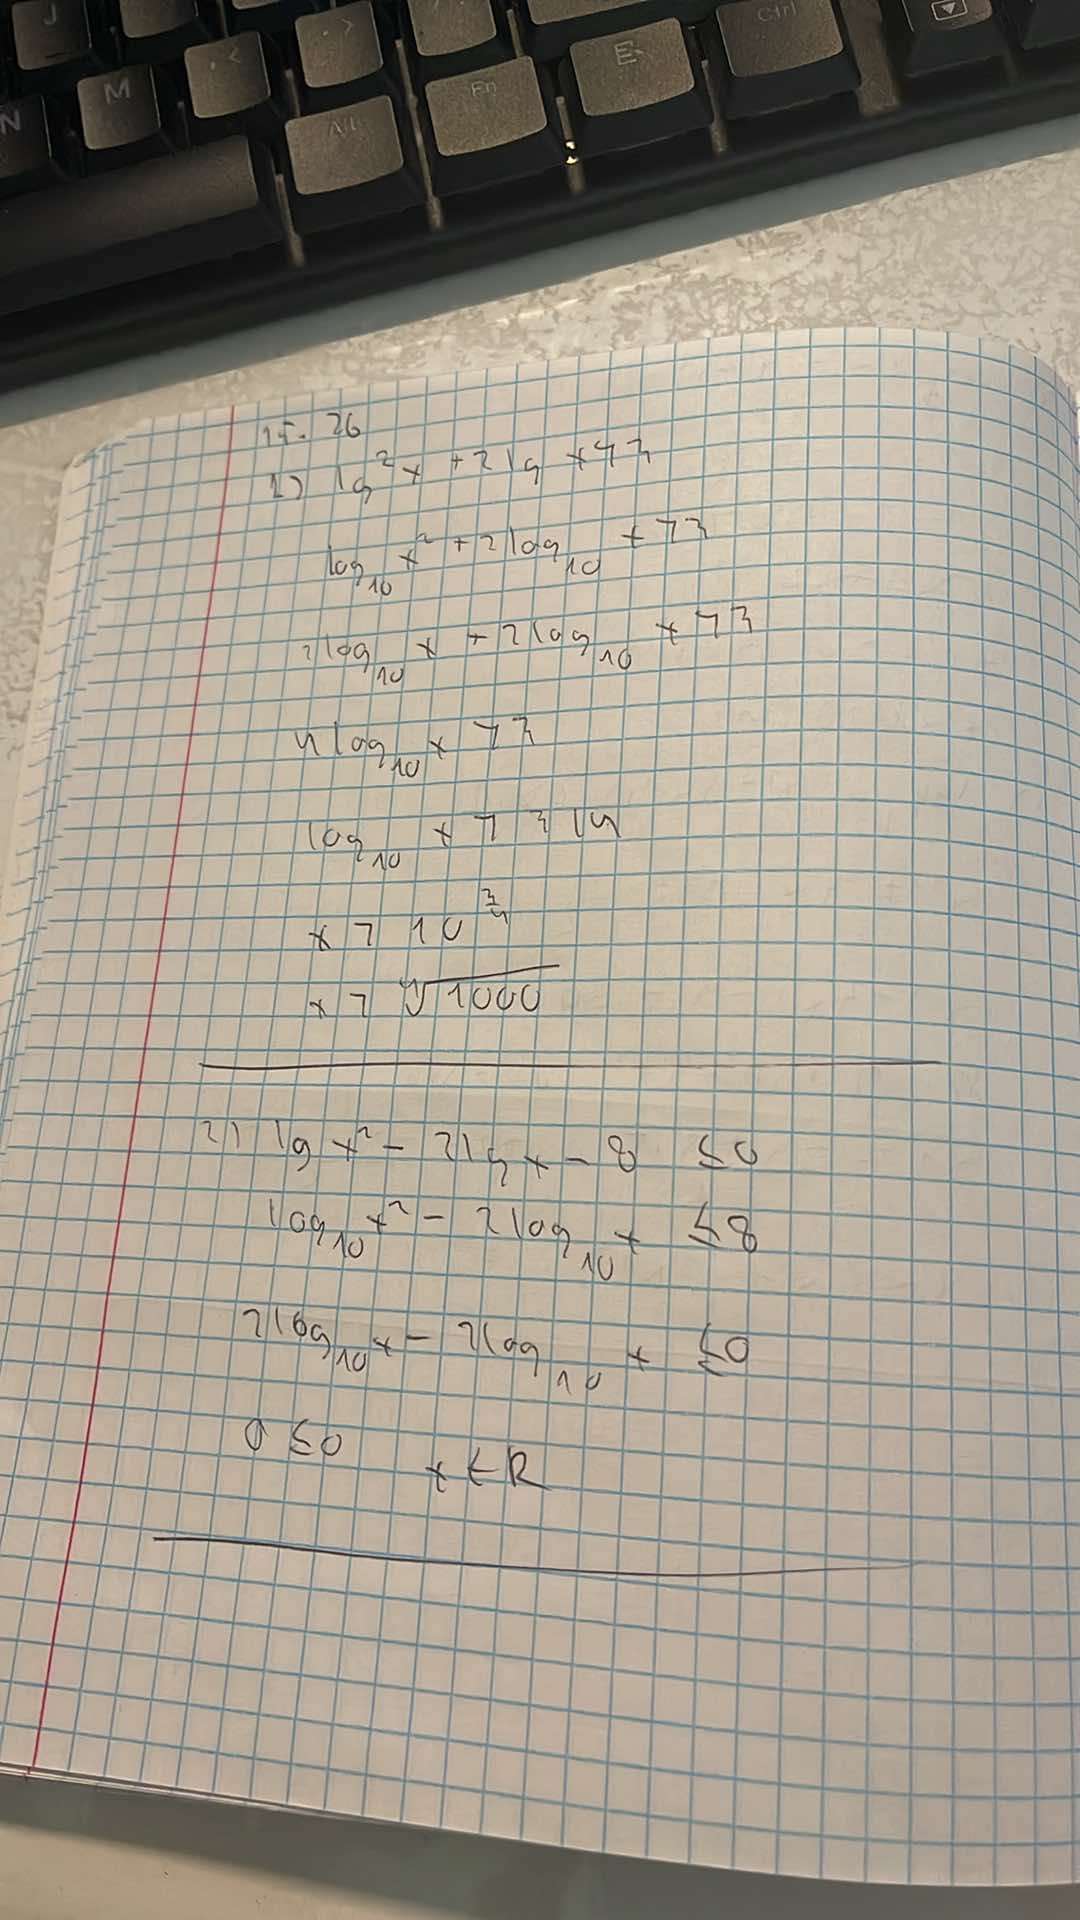 J
M
<
>
N
Alt
Fn
E
Ctrl
15. 26
1) lg²x + 2lg x > 3
log₁₀ x² + 2log₁₀ x > 3
2log₁₀ x + 2log₁₀ x > 3
4log₁₀ x > 3
log₁₀ x > 3/4
x > 10^(3/4)
x > ⁴√1000
2) lg x² - 2lg x - 8 ≤ 0
log₁₀ x² - 2log₁₀ x ≤ 8
2log₁₀ x - 2log₁₀ x ≤ 0
0 ≤ 0 x ∈ R